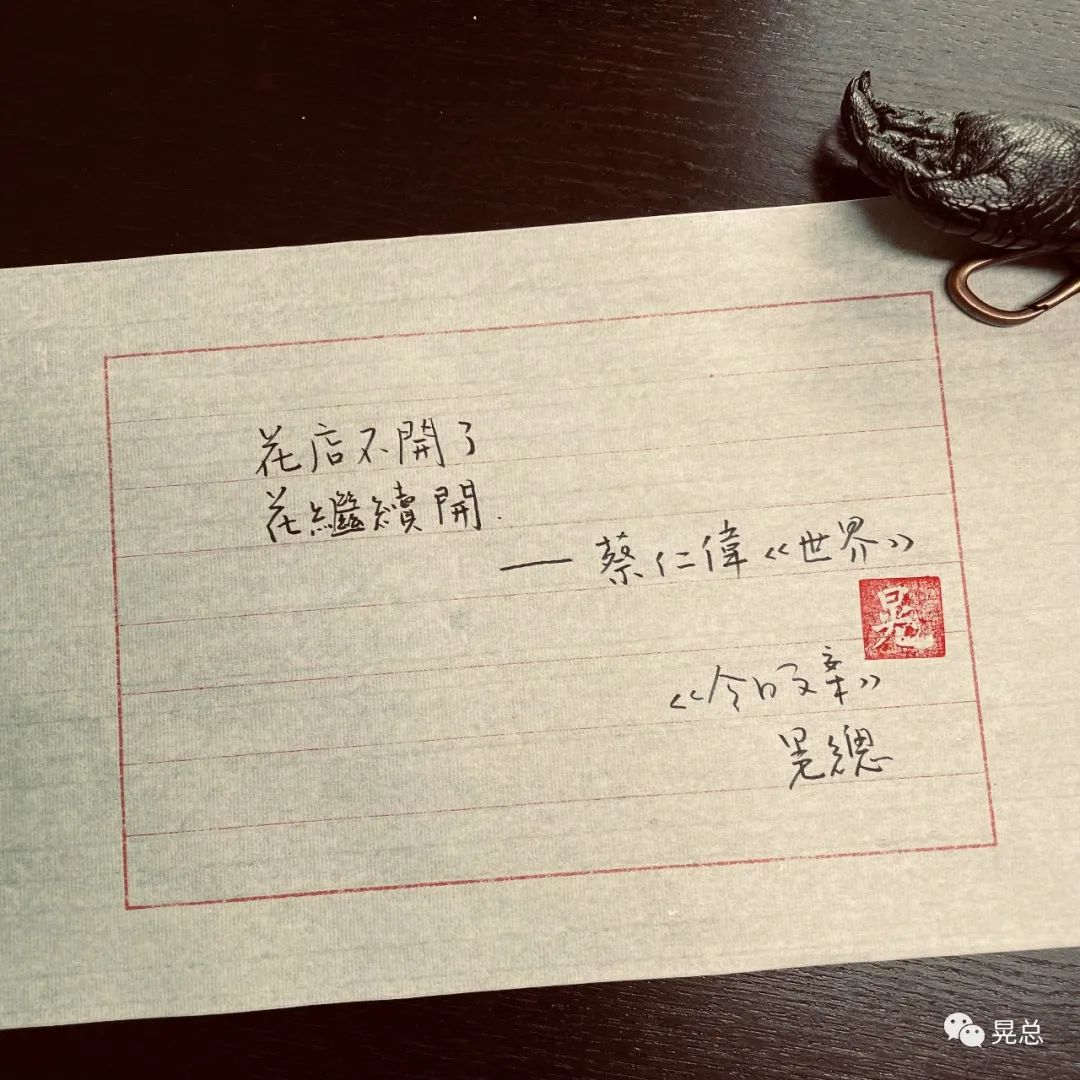 花店不開了
花繼續開.
—— 蔡仁偉《世界》
晃
《今日文案》
晃總
晃总